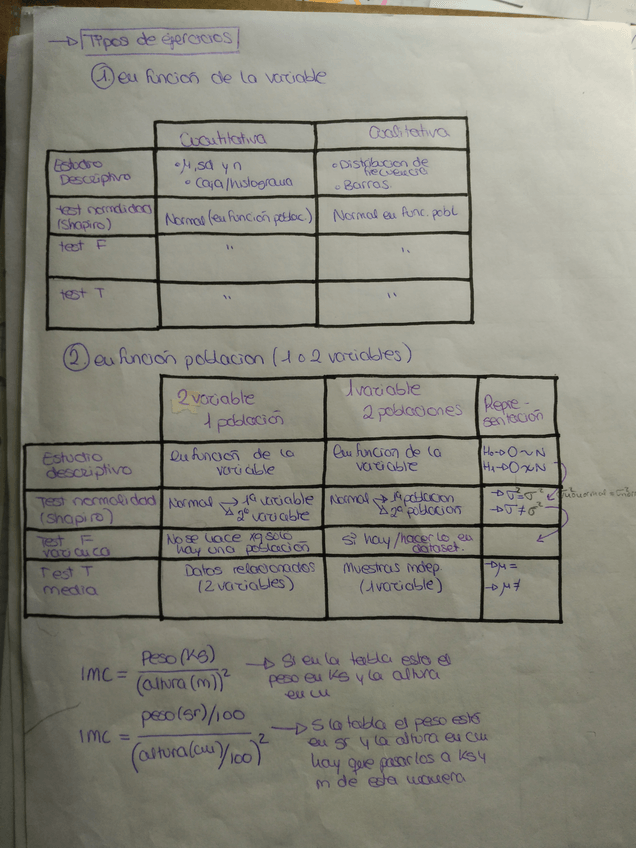 → Tipos de ejercicios
① en función de la variable
Cuantitativa Cualitativa
Estudio Descriptivo
• μ, sd y n
• Caja/histograma
• Distribución de frecuencia
• Barras
test normalidad (Shapiro)
Normal (en función poblac.)
Normal en func. pobl
test F " "
test T " "
② en función poblacion (1 o 2 variables)
2 variable
1 población
1 variable
2 poblaciones
Repre-
sentación
Estudio
descriptivo
En función de la
variable
En función de la
variable
H₀→D~N
H₁→D≁N
Test normalidad
(Shapiro)
Normal → 1ª variable
↘ 2ª variable
Normal → 1ª poblacion
↘ 2ª poblacion
→ σ²=σ²
→ σ²≠σ²
Test F
varianca
No se hace xq solo
hay una población
Si hay/hacerlo en
dataset.
Test T
media
Datos relacionados
(2 variables)
Muestras indep
(1 variable)
→ μ =
→ μ ≠
IMC = Peso(KG) / (altura(m))² → Si en la tabla esta el
peso en KG y la altura
en cm
IMC = peso(gr)/100 / (altura(cm)/100)² → Si la tabla el peso está
en gr y la altura en cm
hay que pasarlos a KG y
m de esta manera